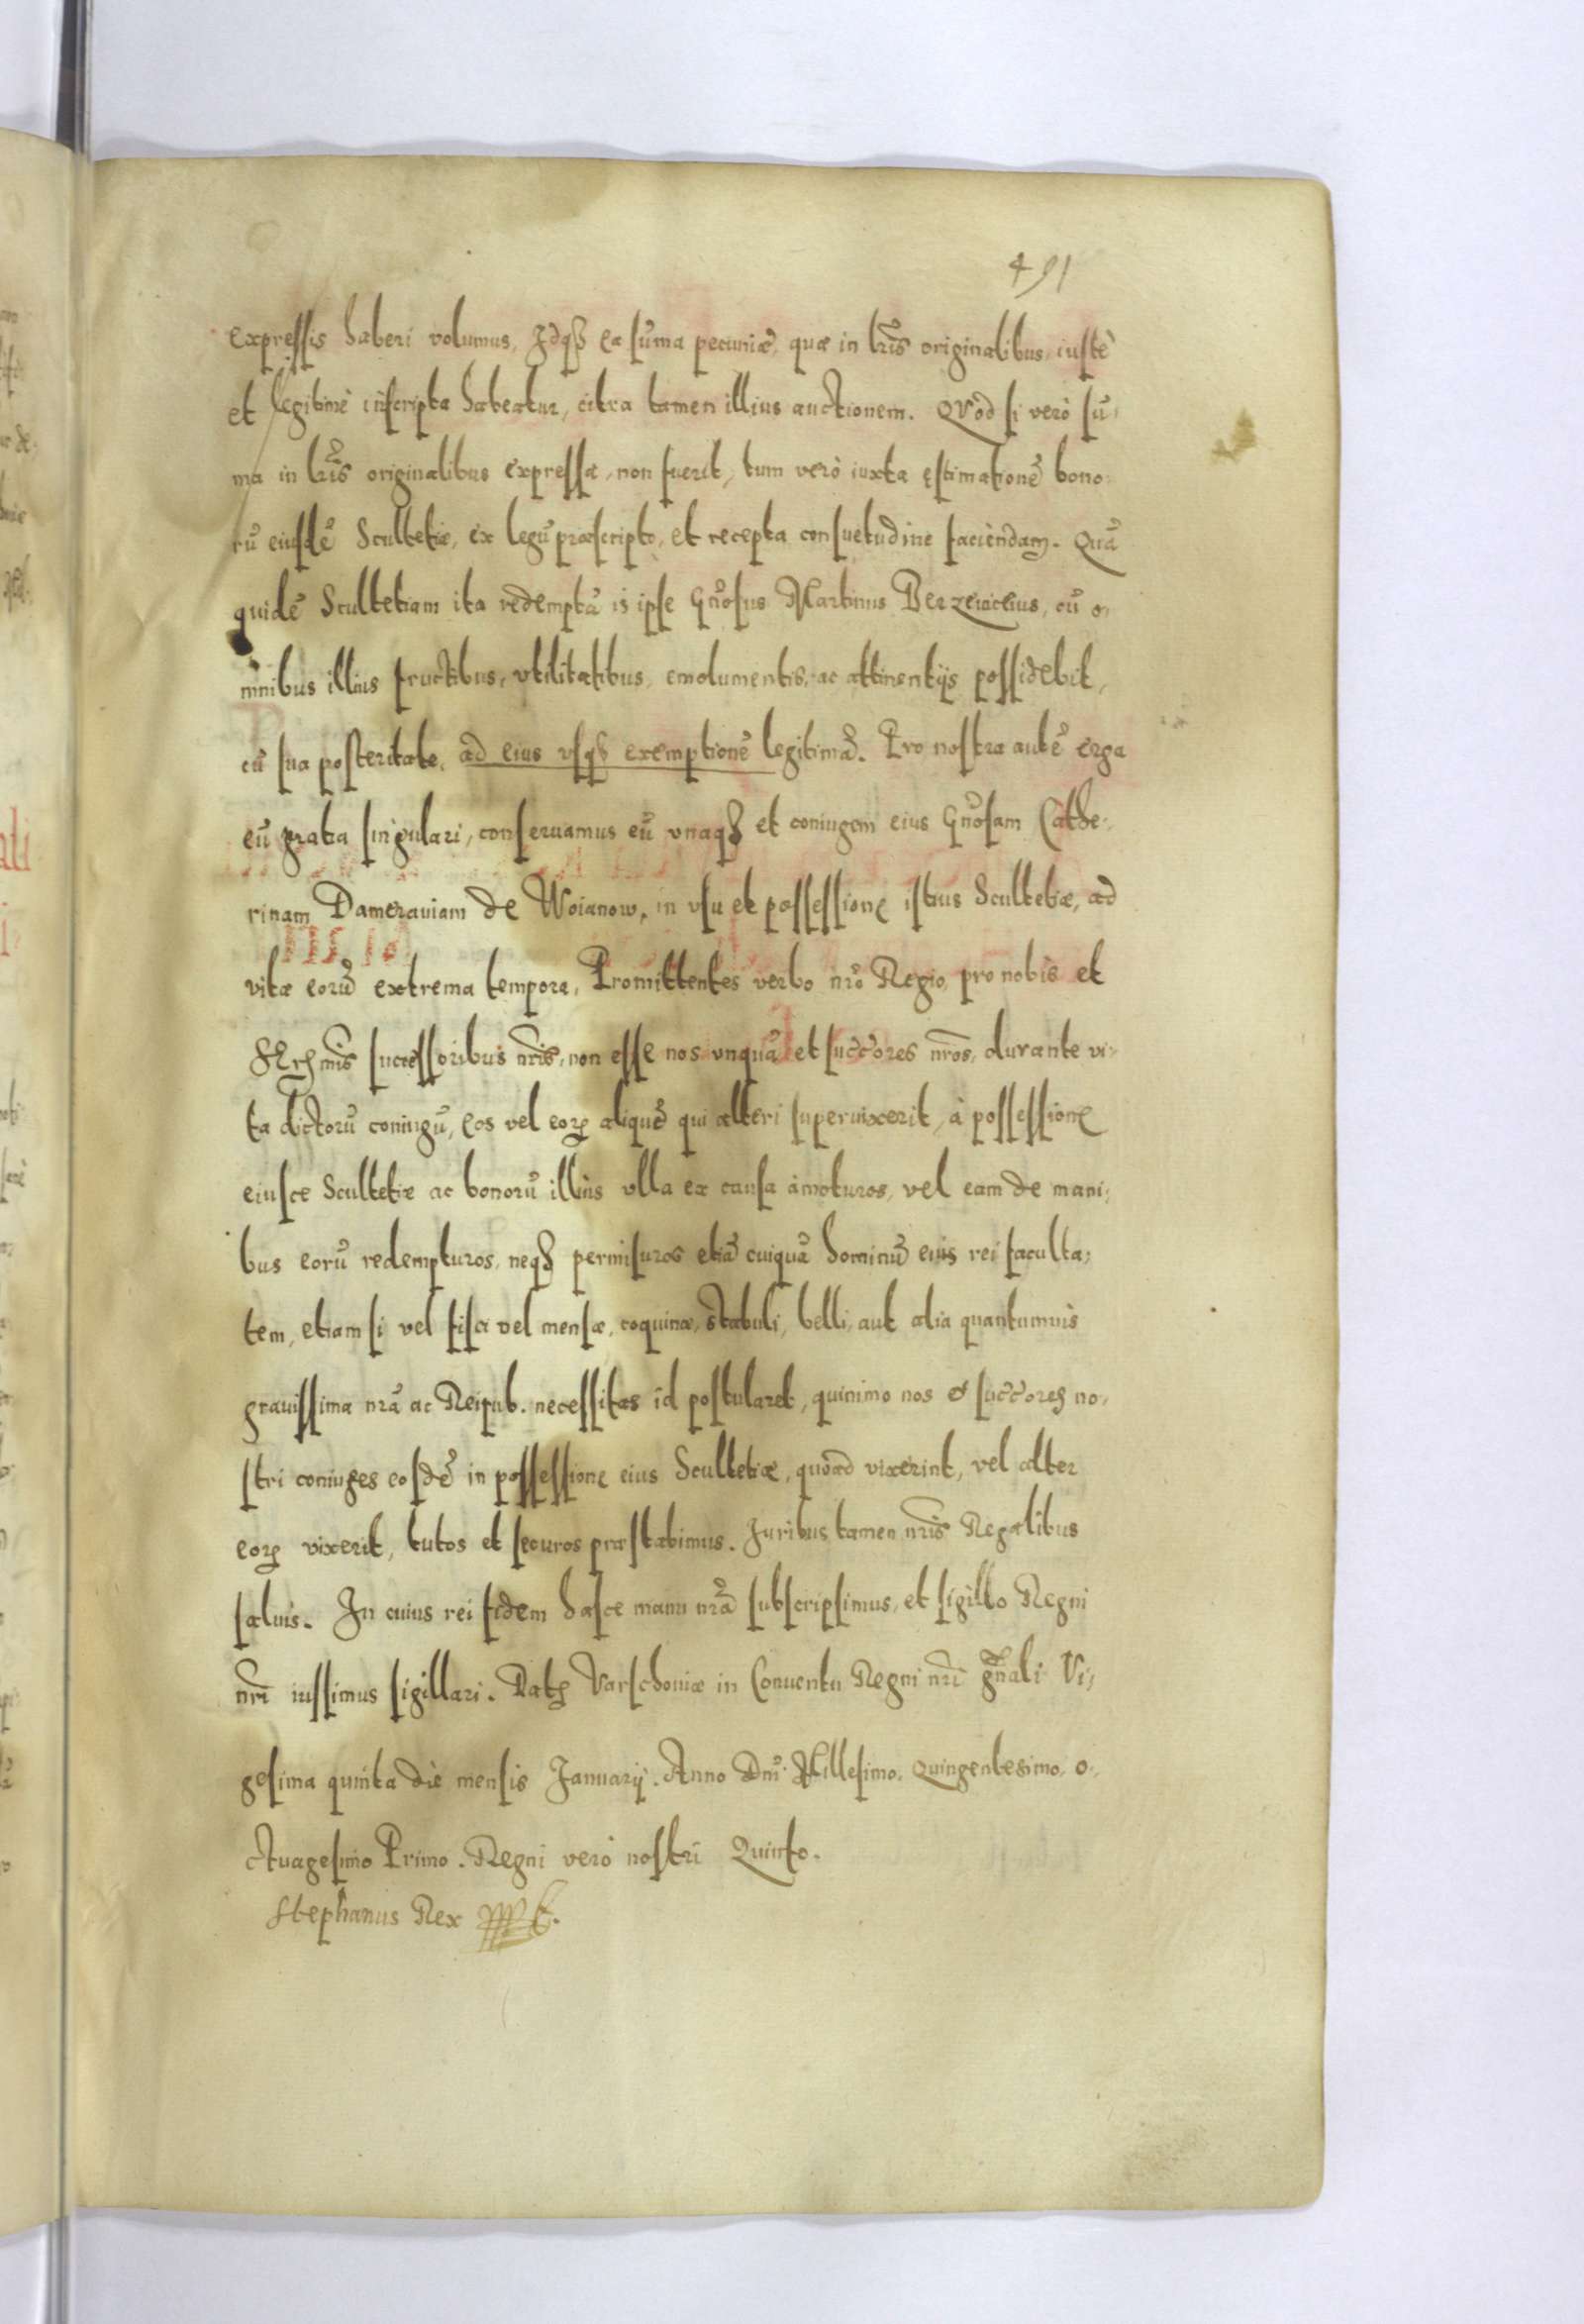 491
expressis haberi volumus, Idq3 ea sūma pecuniæ, quæ in lr̃is originalibus iustè
et legitimè inscripta habeatur, citra tamen illius auctionem. Quod si verò sū,
ma in lr̃is originalibus expressa, non fuerit, tum verò iuxta ęstimationē bono,
rū eiusdē Scultetiæ, ex legū præscripto, et recepta consuetudine faciendam. Quā
quidē Scultetiam ita redemptā is ipse Gñosus Martinus Berzeuicius, cū o,
mnibus illius fructibus, vtilitatibus, emolumentis, ac attinentijs possidebit,
cū sua posteritate, ad eius vsq3 exemptionē legitimā. Pro nostra autē erga
eū gratia singulari, conseruamus eū vnaq3 et coniugem eius Gñosam Cathe,
rinam Dameraviam de Woianow, in vsu et possessione istius Scultetiæ, ad
vitæ eorū extrema tempora, Promittentes verbo nr̃o Regio, pro nobis et
Serꝫmis successoribus nr̃is, non esse nos vnquā et succ̃ores nr̃os, durante vi,
ta dictorū coniugū, eos vel eorꝫ aliquē qui alteri superuixerit, à possessione
eiusce Scultetiæ ac bonorū illius vlla ex causa amoturos, vel eam de mani,
bus eorū redempturos, neq3 permisuros etiā cuiquā hominū eius rei faculta,
tem, etiam si vel fisci vel mensæ, coquinæ, stabuli, belli, aut alia quantumuis
grauissima nr̃a ac Reipub. necessitas id postularet, quinimo nos & succ̃ores no,
stri coniuges eosdē in possessione eius Scultetiæ, quoad vixerint, vel alter
eorꝫ vixerit, tutos et securos præstabimus. Iuribus tamen nr̃is Regalibus
saluis. In cuius rei fidem hasce manu nr̃a subscripsimus, et sigillo Regni
nr̃i iussimus sigillari. Datꝫ Varschoviæ in Conuentu Regni nr̃i gñali Vi,
gesima quinta die mensis Ianuarij. Anno Dnī Millesimo. Quingentesimo. o,
ctuagesimo Primo. Regni verò nostri Quinto.
Stephanus Rex